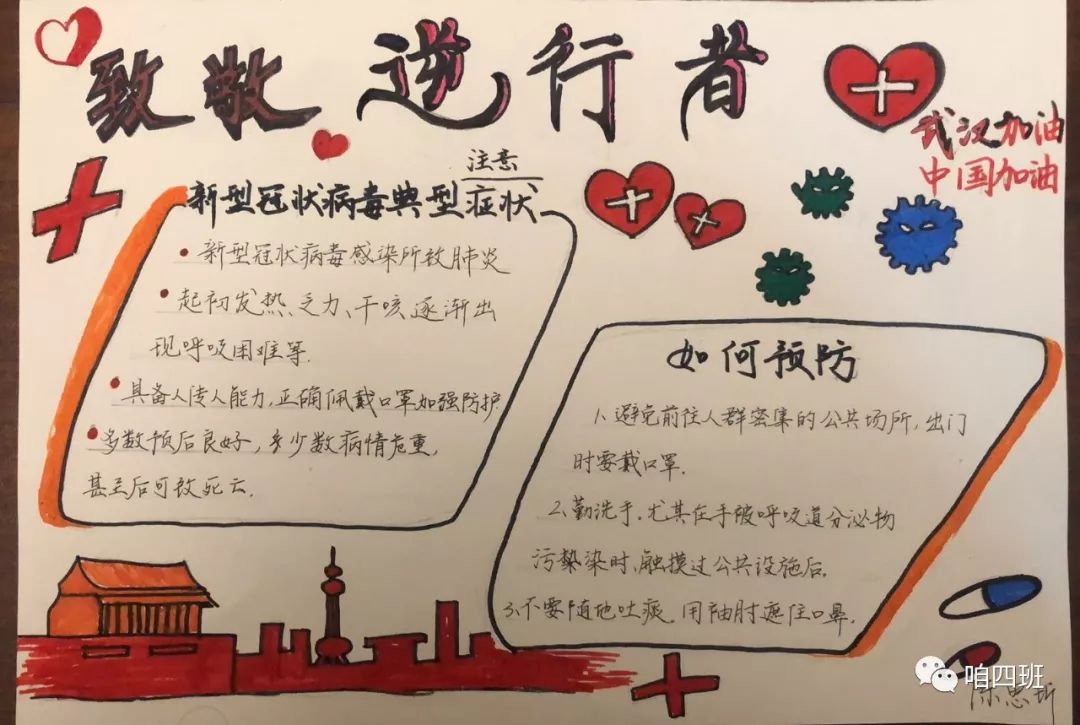 致敬逆行者
武汉加油
中国加油
注意
新型冠状病毒典型症状
新型冠状病毒感染所致肺炎
起初发热、乏力、干咳逐渐出
现呼吸困难等.
具备人传人能力,正确佩戴口罩加强防护
多数预后良好,多少数病情危重,
甚至后可致死亡.
如何预防
1.避免前往人群密集的公共场所,出门
时要戴口罩.
2.勤洗手,尤其在手被呼吸道分泌物
污染时,触摸过公共设施后.
3.不要随地吐痰.用袖肘遮住口鼻.
咱四班
陈思